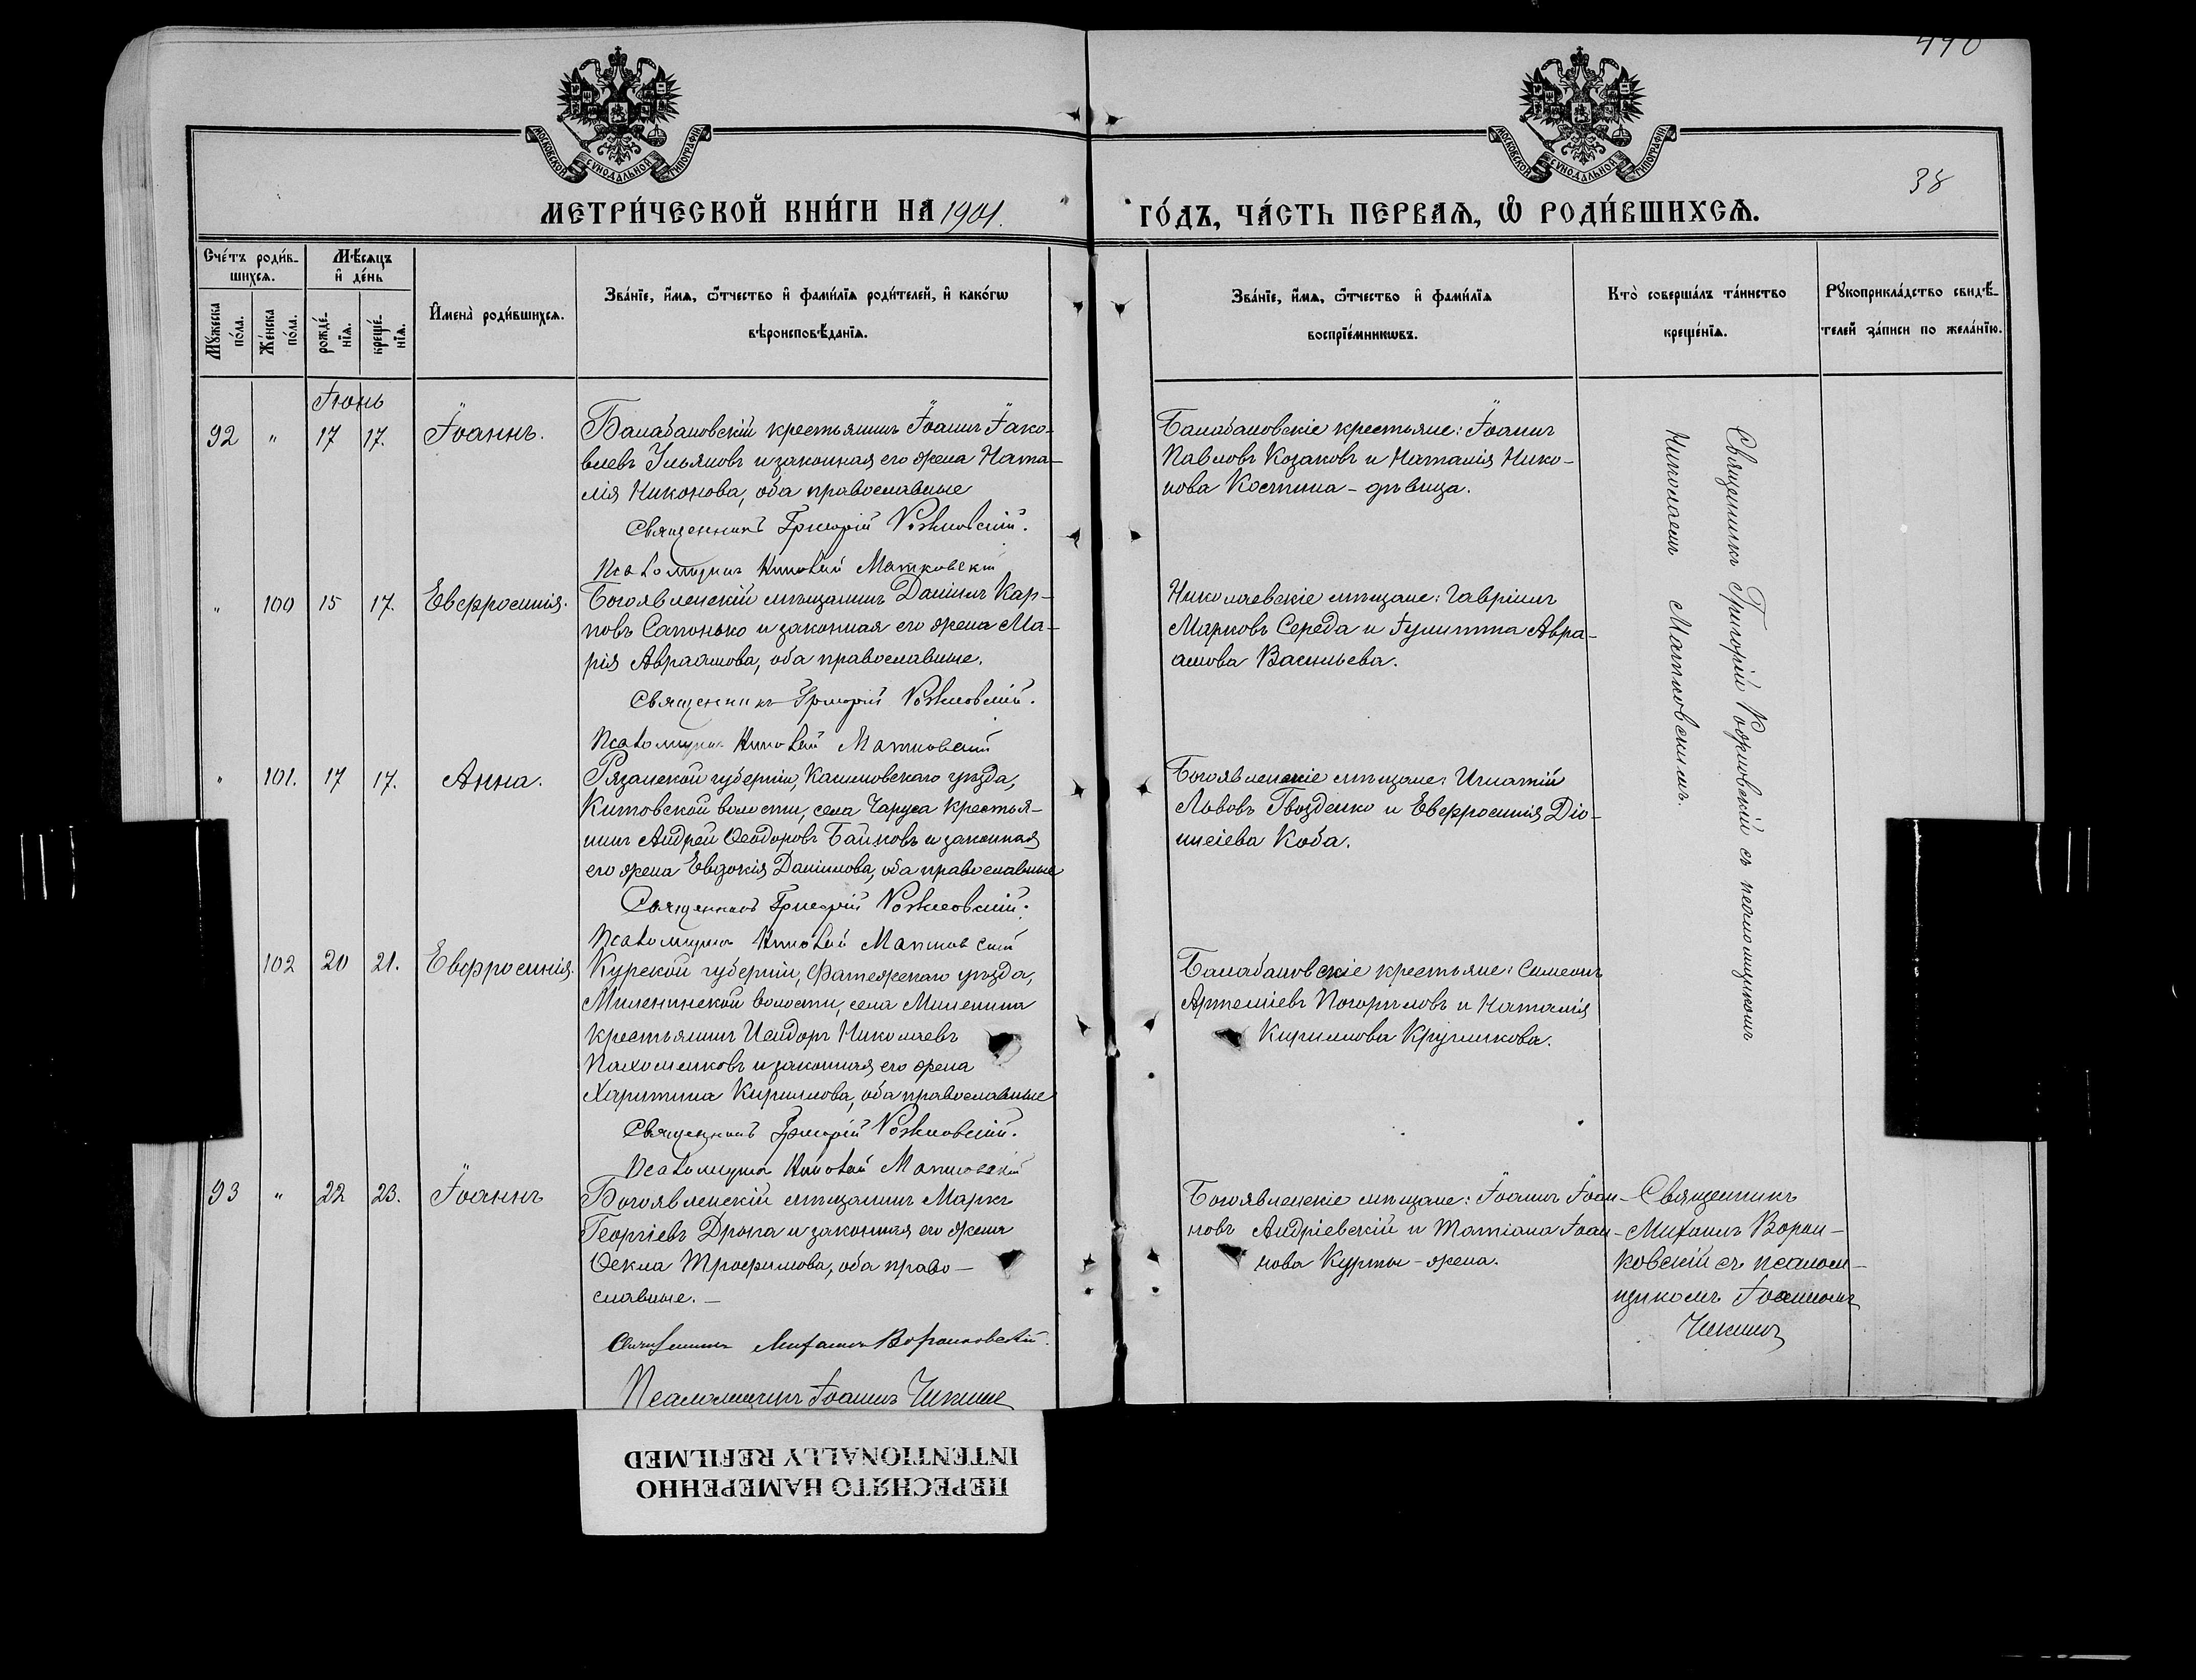 490
МОСКОВСКОЙ СѴНОДАЛЬНОЙ ТИПОГРАФІИ
МОСКОВСКОЙ СѴНОДАЛЬНОЙ ТИПОГРАФІИ
38
МЕТРИ́ЧЕСКОЙ КНИ́ГИ НА 1901.
ГО́ДЪ, ЧА́СТЬ ПЕРВАѦ, Ѽ РОДИ́ВШИХСѦ.
Сче́тъ роди́в-
шихсѧ.
Мѣ́сѧцъ
и҆ де́нь
Мꙋжеска
по́ла.
Же́нска
по́ла.
рожде́-
нїѧ.
креще́-
нїѧ.
И҆мена̀ роди́вшихсѧ.
Зва́нїе, и҆́мѧ, ѻ҆́тчество и҆ фами́лїѧ роди́телей, и҆ како́гѡ
вѣроисповѣ́данїѧ.
Зва́нїе, и҆́мѧ, ѻ҆́тчество и҆ фами́лїѧ
воспрїе́мникѡвъ.
Кто̀ соверша́лъ та́инство
креще́нїѧ.
Рꙋкоприкла́дство свидѣ́-
телей за́писи по жела́нїю.
Іюнь
92 " 17 17. Іоаннъ.
Балабановскій крестьянинъ Іоаннъ Іако-
влевъ Ульяновъ и законная его жена Ната-
лія Никонова, оба православные
Священникъ Григорій
Псаломщикъ Николай Матковскій
Балабановскіе крестьяне: Іоаннъ
Павловъ Козаковъ и Наталія Нико-
нова Костина - дѣвица.
Священникъ Григорій съ псаломщикомъ
Николаемъ Матковскимъ.
" 100 15 17. Евфросинія.
Богоявленскій мѣщанинъ Даніилъ Кар-
повъ Сапонько и законная его жена Ма-
рія Авраамова, оба православные.
Священникъ Григорій
Псаломщикъ Николай Матковскій
Николаевскіе мѣщане: Гавріилъ
Марковъ Середа и Іулитта Авра-
амова Васильева.
" 101. 17 17. Анна.
Рязанской губерніи, Касимовскаго уѣзда,
Китовской волости, села Чаруса крестья-
нинъ Андрей Ѳеодоровъ Байковъ и законная
его жена Евдокія Даніилова, оба православные
Священникъ Григорій
Псаломщикъ Николай Матковскій
Богоявленскіе мѣщане: Игнатій
Львовъ Гвозденко и Евфросинія Діо-
нисіева Коба.
102 20 21. Евфросинія.
Курской губерніи, Фатежскаго уѣзда,
Миленинской волости, села Миленина
крестьянинъ Исидоръ Николаевъ
Пахоменковъ и законная его жена
Харитина Кириллова, оба православные
Священникъ Григорій
Псаломщикъ Николай Матковскій
Балабановскіе крестьяне: Симеонъ
Артеміевъ Погорѣловъ и Наталія
Кириллова Кругликова.
93 " 22 23. Іоаннъ
Богоявленскій мѣщанинъ Маркъ
Георгіевъ Дрока и законная его жена
Ѳекла Трофимова, оба право-
славные. -
Священникъ Михаилъ Воронковскій.
Псаломщикъ Іоаннъ
Богоявленскіе мѣщане: Іоаннъ Іоан-
новъ Андріевскій и Татіана Іоан-
нова Курты - жена.
Священникъ
Михаилъ Ворон-
ковскій съ псалом-
щикомъ Іоанномъ
ПЕРЕСНЯТО НАМЕРЕННО
INTENTIONALLY REFILMED